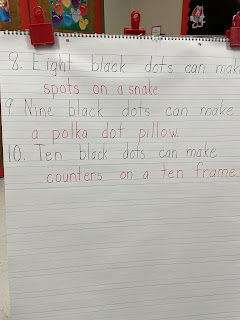 8. Eight black dots can make
spots on a snake
9 Nine black dots can make
a polka dot pillow.
10. Ten black dots can make
counters on a ten frame